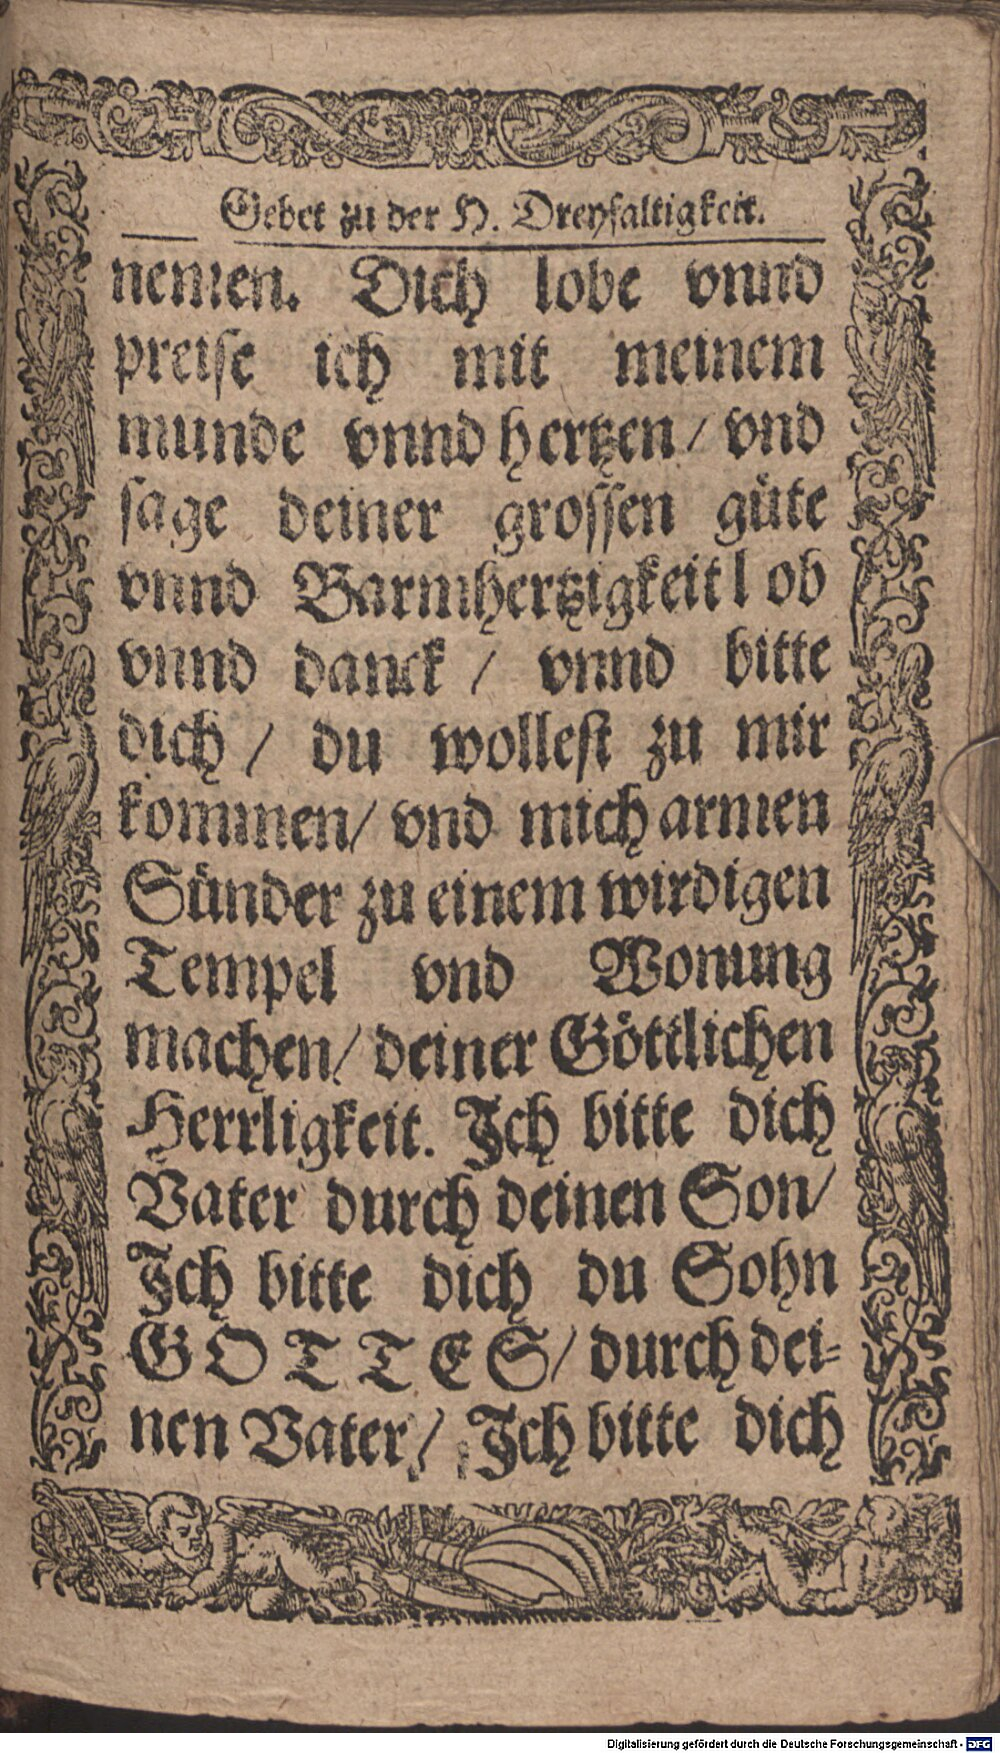 Gebet zu der H. Dreyfaltigkeit.
nemen. Dich lobe vnnd
preise ich mit meinem
munde vnnd hertzen / vnd
sage deiner grossen güte
vnnd Barmhertzigkeit l ob
vnnd danck / vnnd bitte
dich / du wollest zu mir
kommen / vnd mich armen
Sünder zu einem wirdigen
Tempel vnd Wonung
machen / deiner Göttlichen
Herrligkeit. Ich bitte dich
Vater durch deinen Son /
Ich bitte dich du Sohn
GOTTES / durch dei-
nen Vater / Ich bitte dich
Digitalisierung gefördert durch die Deutsche Forschungsgemeinschaft - DFG